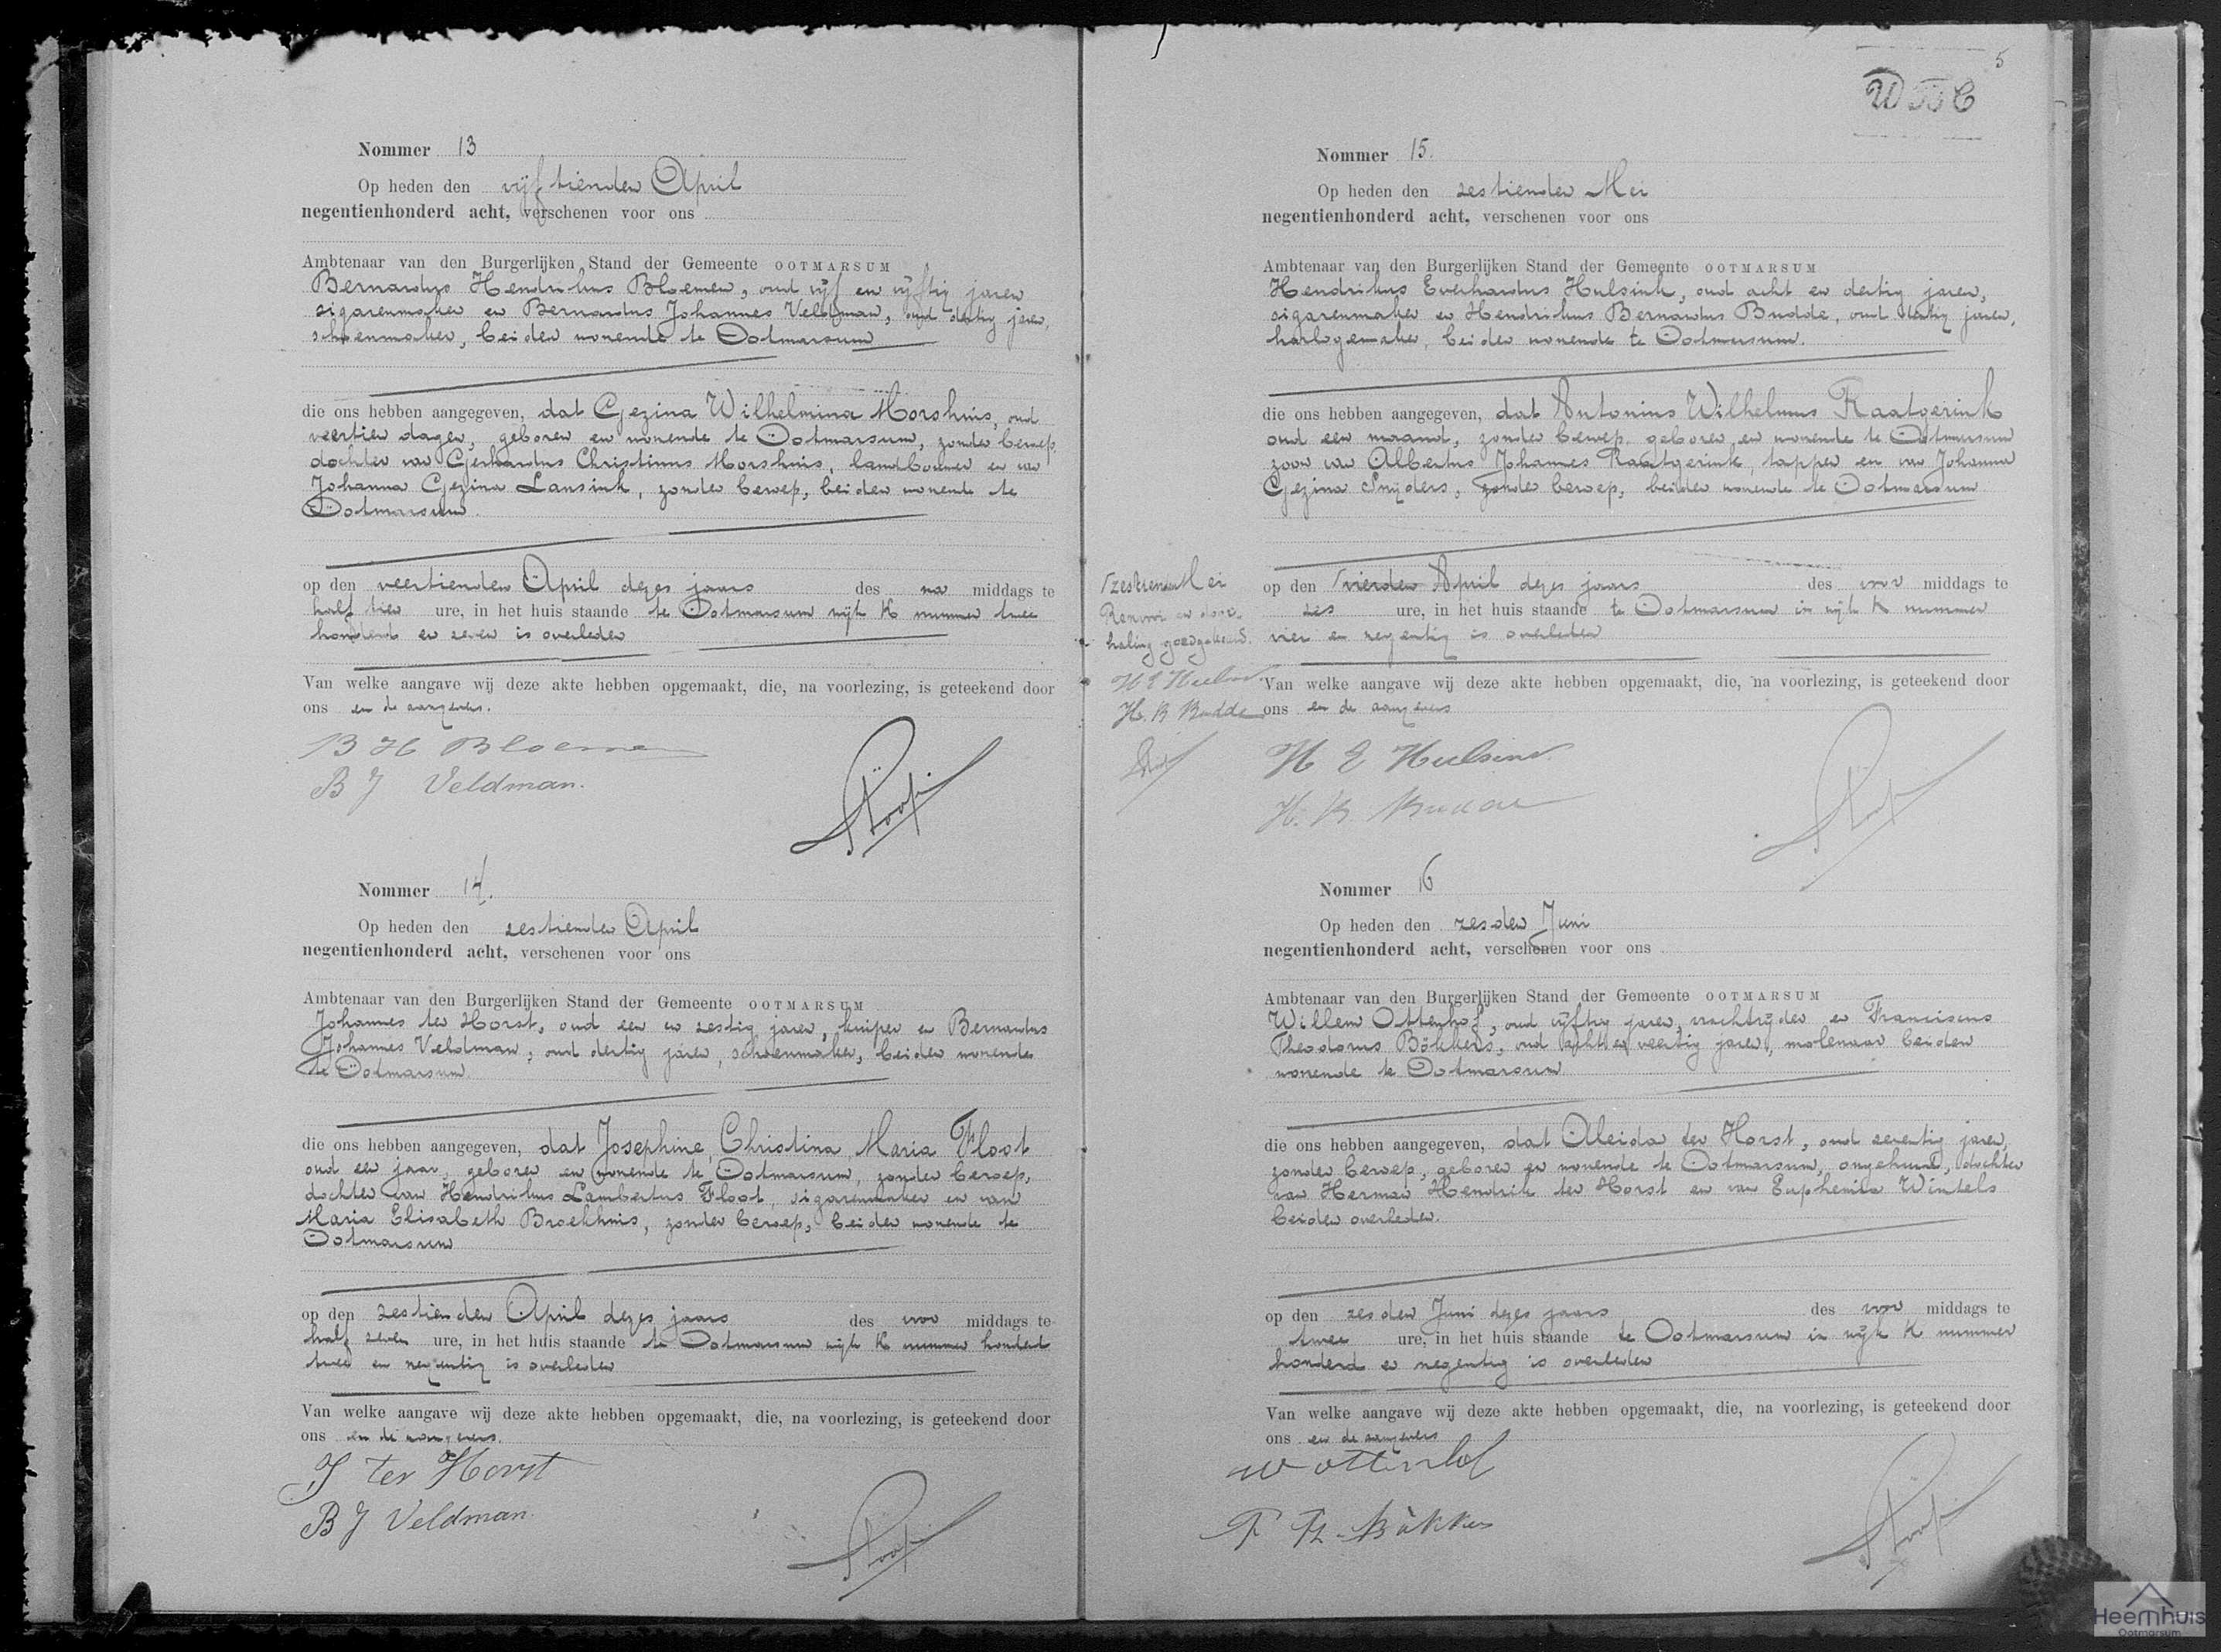 Nommer 13
Op heden den vijftienden April
negentienhonderd acht, verschenen voor ons
Ambtenaar van den Burgerlijken Stand der Gemeente OOTMARSUM
Bernardus Hendrikus Bloemen, oud vijf en vijftig jaren
sigarenmaker en Bernardus Johannes Veldman, oud dertig jaren,
schoenmaker, beiden wonende te Ootmarsum
die ons hebben aangegeven, dat Gezina Wilhelmina Morshuis, oud
veertien dagen, geboren en wonende te Ootmarsum, zonder beroep
dochter van Gerhardus Christinus Morshuis, landbouwer en van
Johanna Gezina Lansink, zonder beroep, beiden wonende te
Ootmarsum.
op den veertienden April dezes jaars des na middags te
half tien ure, in het huis staande te Ootmarsum wijk K nummer twee
honderd en zeven is overleden
Van welke aangave wij deze akte hebben opgemaakt, die, na voorlezing, is geteekend door
ons en de aangevers.
B H Bloemen
B J Veldman.
Nommer 14.
Op heden den zestienden April
negentienhonderd acht, verschenen voor ons
Ambtenaar van den Burgerlijken Stand der Gemeente OOTMARSUM
Johannes ter Horst, oud een en zestig jaren, kuiper en Bernardus
Johannes Veldman, oud dertig jaren, schoenmaker, beiden wonende
te Ootmarsum
die ons hebben aangegeven, dat Josephine Christina Maria Floot
oud een jaar, geboren en wonende te Ootmarsum, zonder beroep,
dochter van Hendrikus Lambertus Floot, sigarenmaker en van
Maria Elisabeth Broekhuis, zonder beroep, beiden wonende te
Ootmarsum
op den zestienden April dezes jaars des voor middags te
half zeven ure, in het huis staande te Ootmarsum wijk K nummer honderd
twee en negentig is overleden
Van welke aangave wij deze akte hebben opgemaakt, die, na voorlezing, is geteekend door
ons en de aangevers.
J ter Horst
B J Veldman.
5
Nommer 15.
Op heden den zestienden Mei
negentienhonderd acht, verschenen voor ons
Ambtenaar van den Burgerlijken Stand der Gemeente OOTMARSUM
Hendrikus Everhardus Hulsink, oud acht en dertig jaren,
sigarenmaker en Hendrikus Bernardus Budde, oud dertig jaren,
horlogemaker, beiden wonende te Ootmarsum.
die ons hebben aangegeven, dat Antonius Wilhelmus Raatgerink
oud een maand, zonder beroep geboren en wonende te Ootmarsum
zoon van Albertus Johannes Raatgerink, tapper en van Johanna
Gezina Snijders, zonder beroep, beiden wonende te Ootmarsum
op den vierden April dezes jaars des voor middags te
zes ure, in het huis staande te Ootmarsum in wijk K nummer
vier en negentig is overleden
zestienden Mei
Renvooi en door-
haling goedgekeurd.
H E Hulsink
H. B Budde
Van welke aangave wij deze akte hebben opgemaakt, die, na voorlezing, is geteekend door
ons en de aangevers
H E Hulsink
H. B. Budde
Nommer 16
Op heden den zesden Juni
negentienhonderd acht, verschenen voor ons
Ambtenaar van den Burgerlijken Stand der Gemeente OOTMARSUM
Willem Ottenhof, oud vijftig jaren, vrachtrijder en Franciscus
Theodorus Bökkers, oud acht en veertig jaren, molenaar beiden
wonende te Ootmarsum
die ons hebben aangegeven, dat Aleida ter Horst, oud zeventig jaren,
zonder beroep, geboren en wonende te Ootmarsum, ongehuwd, dochter
van Herman Hendrik ter Horst en van Euphemia Wintels
beiden overleden.
op den zesden Juni dezes jaars des voor middags te
twee ure, in het huis staande te Ootmarsum in wijk K nummer
honderd en negentig is overleden
Van welke aangave wij deze akte hebben opgemaakt, die, na voorlezing, is geteekend door
ons en de aangevers
W Ottenhof
F Th. Bökkers
Heemhuis
Ootmarsum